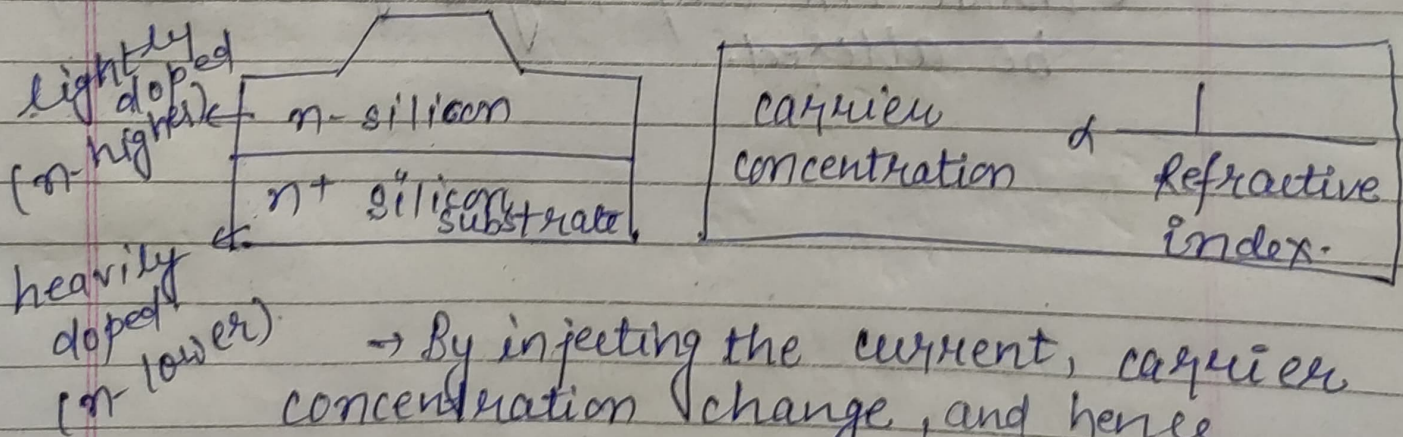 lightly
doped
(n-higher)
n-silicon
n+ silicon
substrate
heavily
doped
(n-lower)
carrier
concentration
α
1
Refractive
index.
→ By injecting the current, carrier
concentration change, and hence